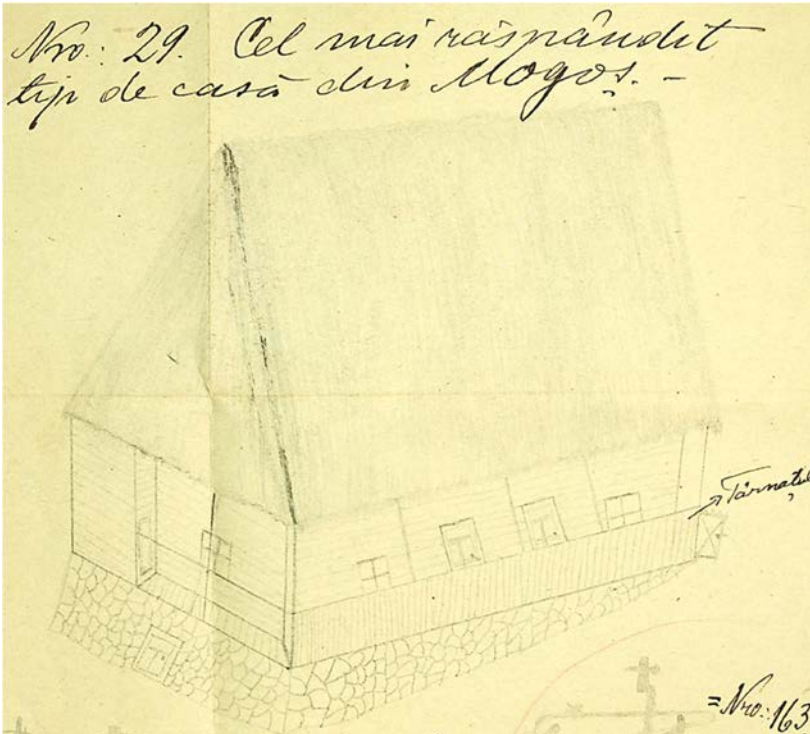 Nro: 29. Cel mai răspândit
tip de casă din Mogoș. -
Târnațul
= Nro: 163